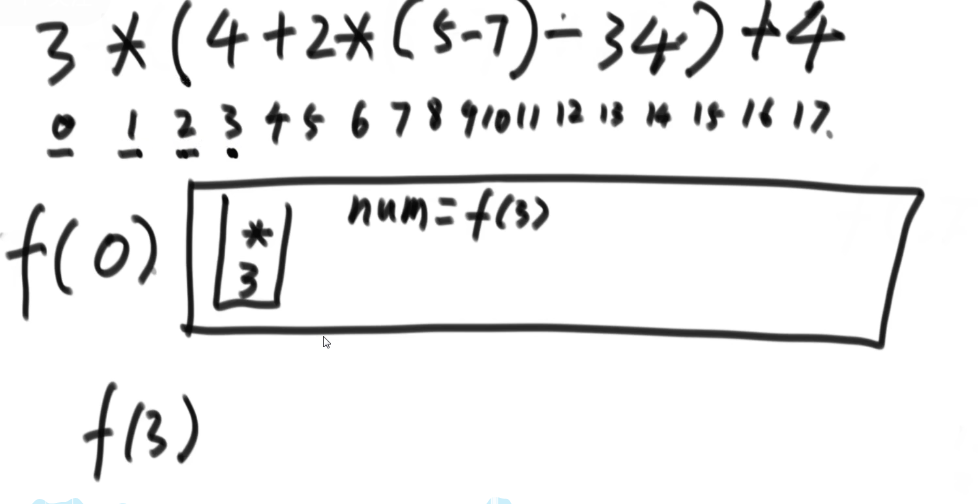 3 * ( 4 + 2 * ( 5 - 7 ) - 34 ) + 4
0 1 2 3 4 5 6 7 8 9 10 11 12 13 14 15 16 17
f(0) * num = f(3)
3
f(3)